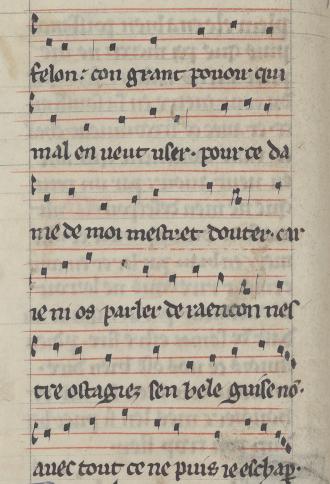 felon: con grant pouoir qui
mal en ueut user. pour ce da
me de moi mestuet douter. car
ie ni os parler de raencon nes
tre ostagiez sen bele guise nō.
auec tout ce ne puis ie eschap̄.